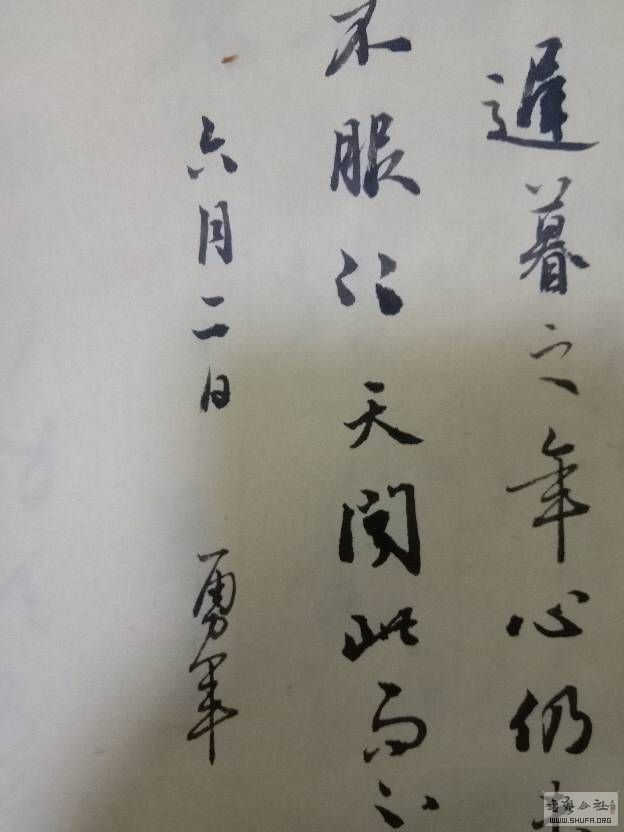 遲暮之年心仍
不服行天闻此而不
六月二日 勇军
书法公社
WWW.SHUFA.ORG